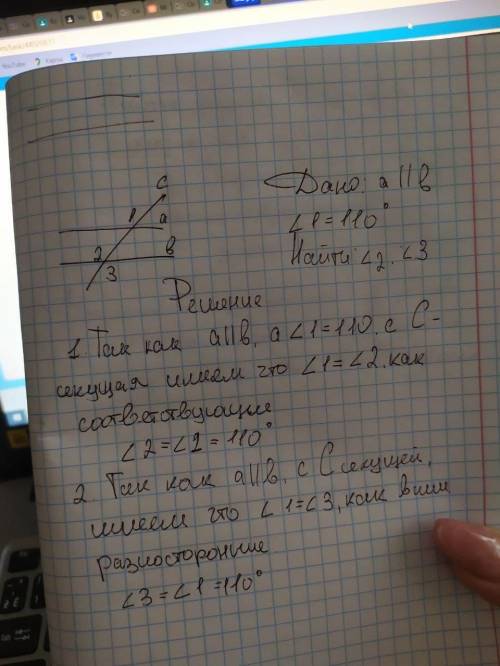 C
1 a
2 b
3
Дано: a || b
∠1 = 110°
Найти ∠2. ∠3
Решение
1. Так как a||b, а ∠1=110. с С-
секущая имеем что ∠1=∠2. как
соответствующие
∠2=∠1=110°
2 Так как a||b, с С секущей,
имеем что ∠1=∠3, как вним
разносторонние
∠3=∠1=110°
YouTube
Карты